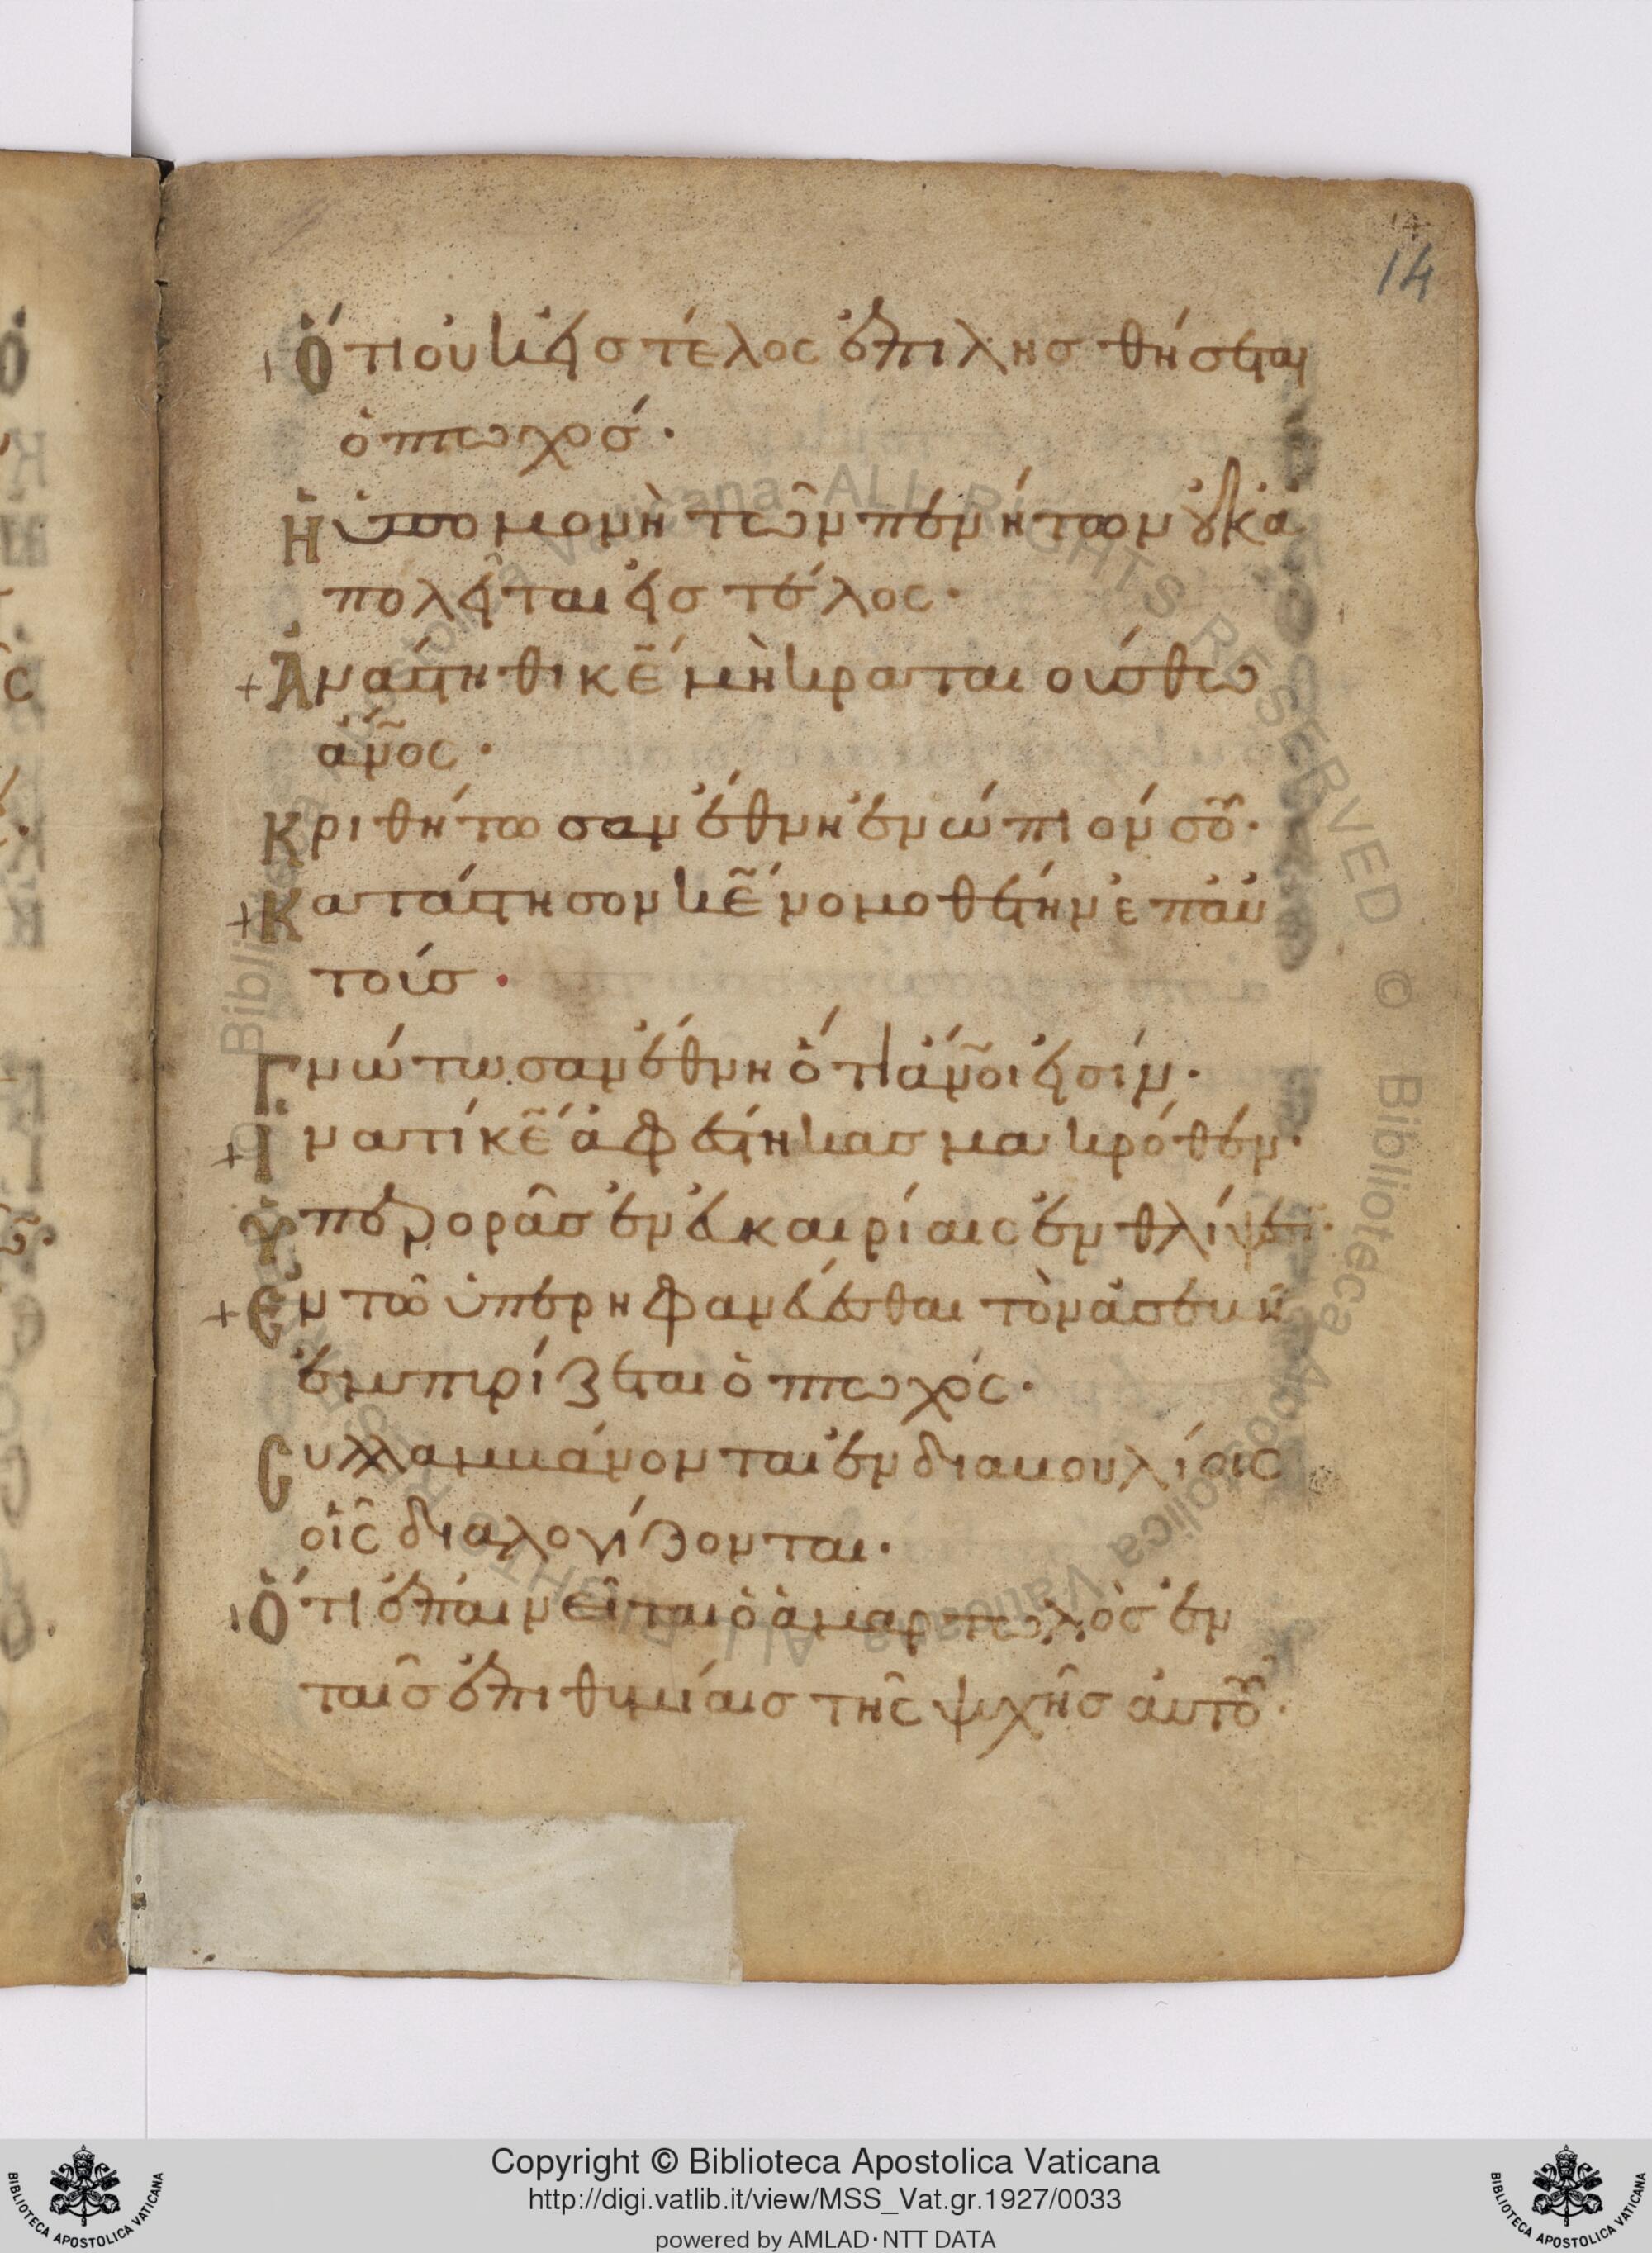 14
Ὅτι οὐκ εἰς τέλος ἐπιλησθήσεται
ὁ πτωχός·
Ἡ ὑπομονὴ τῶν πενήτων οὐκ ἀ
πολεῖται εἰς τέλος·
+ Ἀνάστηθι κ̅ε̅ μὴ κραταιούσθω
ἄν̅ο̅ς·
Κριθήτωσαν ἔθνη ἐνώπιόν σου·
+ Κατάστησον κ̅ε̅ νομοθέτην ἐπ αὐ
τούς·
Γνώτωσαν ἔθνη ὅτι ἄν̅ο̅ι εἰσίν·
+ Ἵνα τί κ̅ε̅ ἀφέστηκας μακρόθεν·
Ὑπερορᾶς ἐν εὐκαιρίαις ἐν θλίψει·
+ Ἐν τῶ ὑπερηφανεύεσθαι τὸν ἀσεβῆ
ἐμπυρίζεται ὁ πτωχός·
Συλλαμβάνονται ἐν διαβουλίοις
οἷς διαλογίζονται·
Ὅτι ἐπαινεῖται ὁ ἁμαρτωλὸς ἐν
ταῖς ἐπιθυμίαις τῆς ψυχῆς αὐτοῦ·
Copyright © Biblioteca Apostolica Vaticana
http://digi.vatlib.it/view/MSS_Vat.gr.1927/0033
powered by AMLAD·NTT DATA
BIBLIOTECA APOSTOLICA VATICANA
BIBLIOTECA APOSTOLICA VATICANA